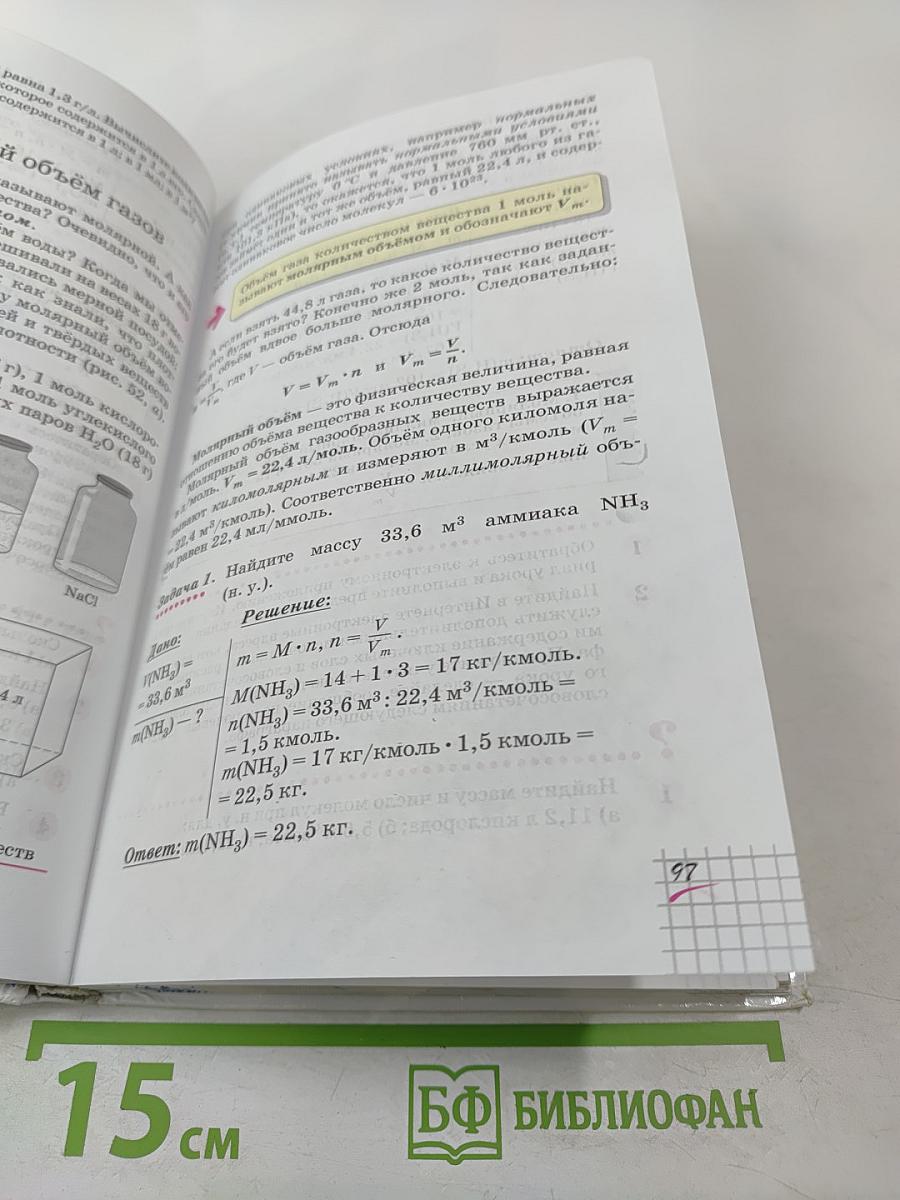 равна 1,3 г/л. Вычислите
которое содержится в 1 л
содержится в 1 л; в 1 мл; в 1 м³
й объём газов
называют молярной. А
ества? Очевидно, что
ком.
ём воды? Когда мы
вешивали на весах 18 г
вались мерной посудой,
как знали, что
у молярный объём
ей и твёрдых веществ
лотности (рис. 52, а).
г), 1 моль кислоро-
1 моль углекислого
х паров H₂O (18 г)
NaCl
4 л
еств
условиях, например нормальных
называть нормальными условиями
температуру 0 °С и давление 760 мм рт. ст.,
101,3 кПа), то окажется, что 1 моль любого из га-
один и тот же объём, равный 22,4 л, и содер-
одинаковое число молекул — 6 · 10²³.
Объём газа количеством вещества 1 моль на-
зывают молярным объёмом и обозначают Vₘ.
А если взять 44,8 л газа, то какое количество вещест-
ва его будет взято? Конечно же 2 моль, так как задан-
ный объём вдвое больше молярного. Следовательно:
где V — объём газа. Отсюда
V = Vₘ · n и Vₘ = V/n.
Молярный объём — это физическая величина, равная
отношению объёма вещества к количеству вещества.
Молярный объём газообразных веществ выражается
в л/моль. Vₘ = 22,4 л/моль. Объём одного киломоля на-
зывают киломолярным и измеряют в м³/кмоль (Vₘ =
= 22,4 м³/кмоль). Соответственно миллимолярный объ-
ём равен 22,4 мл/ммоль.
Задача 1. Найдите массу 33,6 м³ аммиака NH₃
(н. у.).
Решение:
Дано:
V(NH₃) =
= 33,6 м³
m(NH₃) — ?
m = M · n, n = V/Vₘ.
M(NH₃) = 14 + 1 · 3 = 17 кг/кмоль.
n(NH₃) = 33,6 м³ : 22,4 м³/кмоль =
= 1,5 кмоль.
m(NH₃) = 17 кг/кмоль · 1,5 кмоль =
= 22,5 кг.
Ответ: m(NH₃) = 22,5 кг.
97
15 см
БФ БИБЛИОФАН